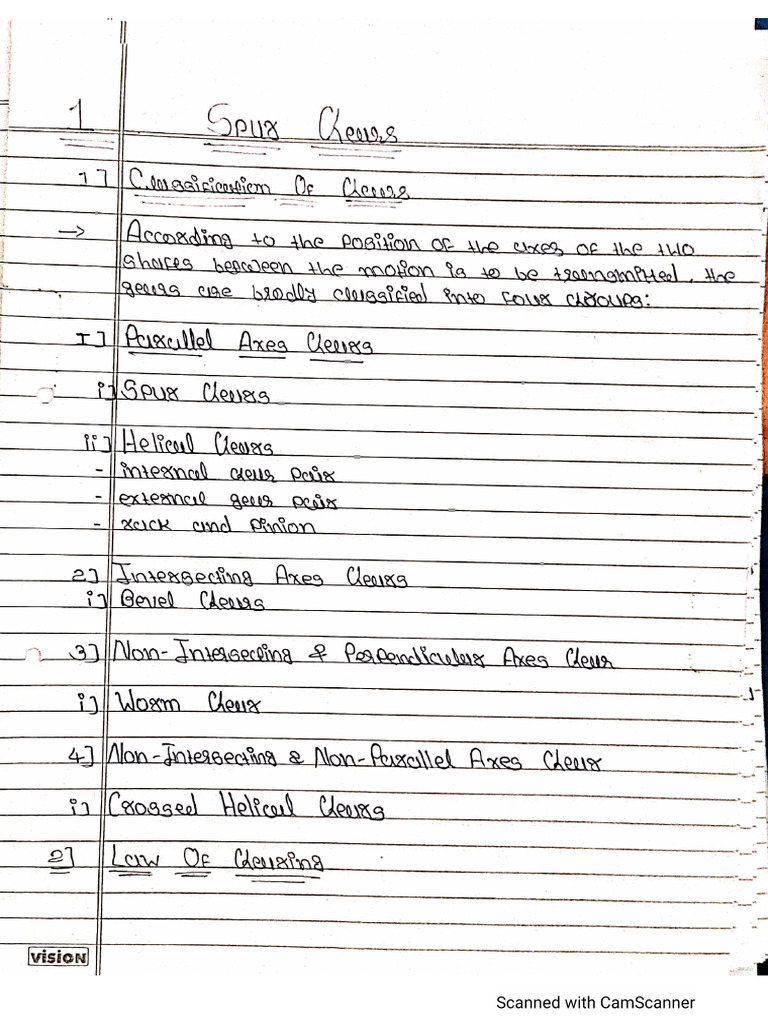 1 Spur Gears
1] Classification Of Gears
→ According to the position of the axes of the two
shafts between the motion is to be transmitted, the
gears are brodly classified into four groups:
I] Parallel Axes Gears
i] Spur Gears
ii] Helical Gears
- internal gear pair
- external gear pair
- rack and pinion
2] Intersecting Axes Gears
i] Bevel Gears
3] Non-Intersecting & Perpendicular Axes Gear
i] Worm Gear
4] Non-Intersecting & Non-Parallel Axes Gear
i] Crossed Helical Gears
2] Law Of Gearing
vision
Scanned with CamScanner